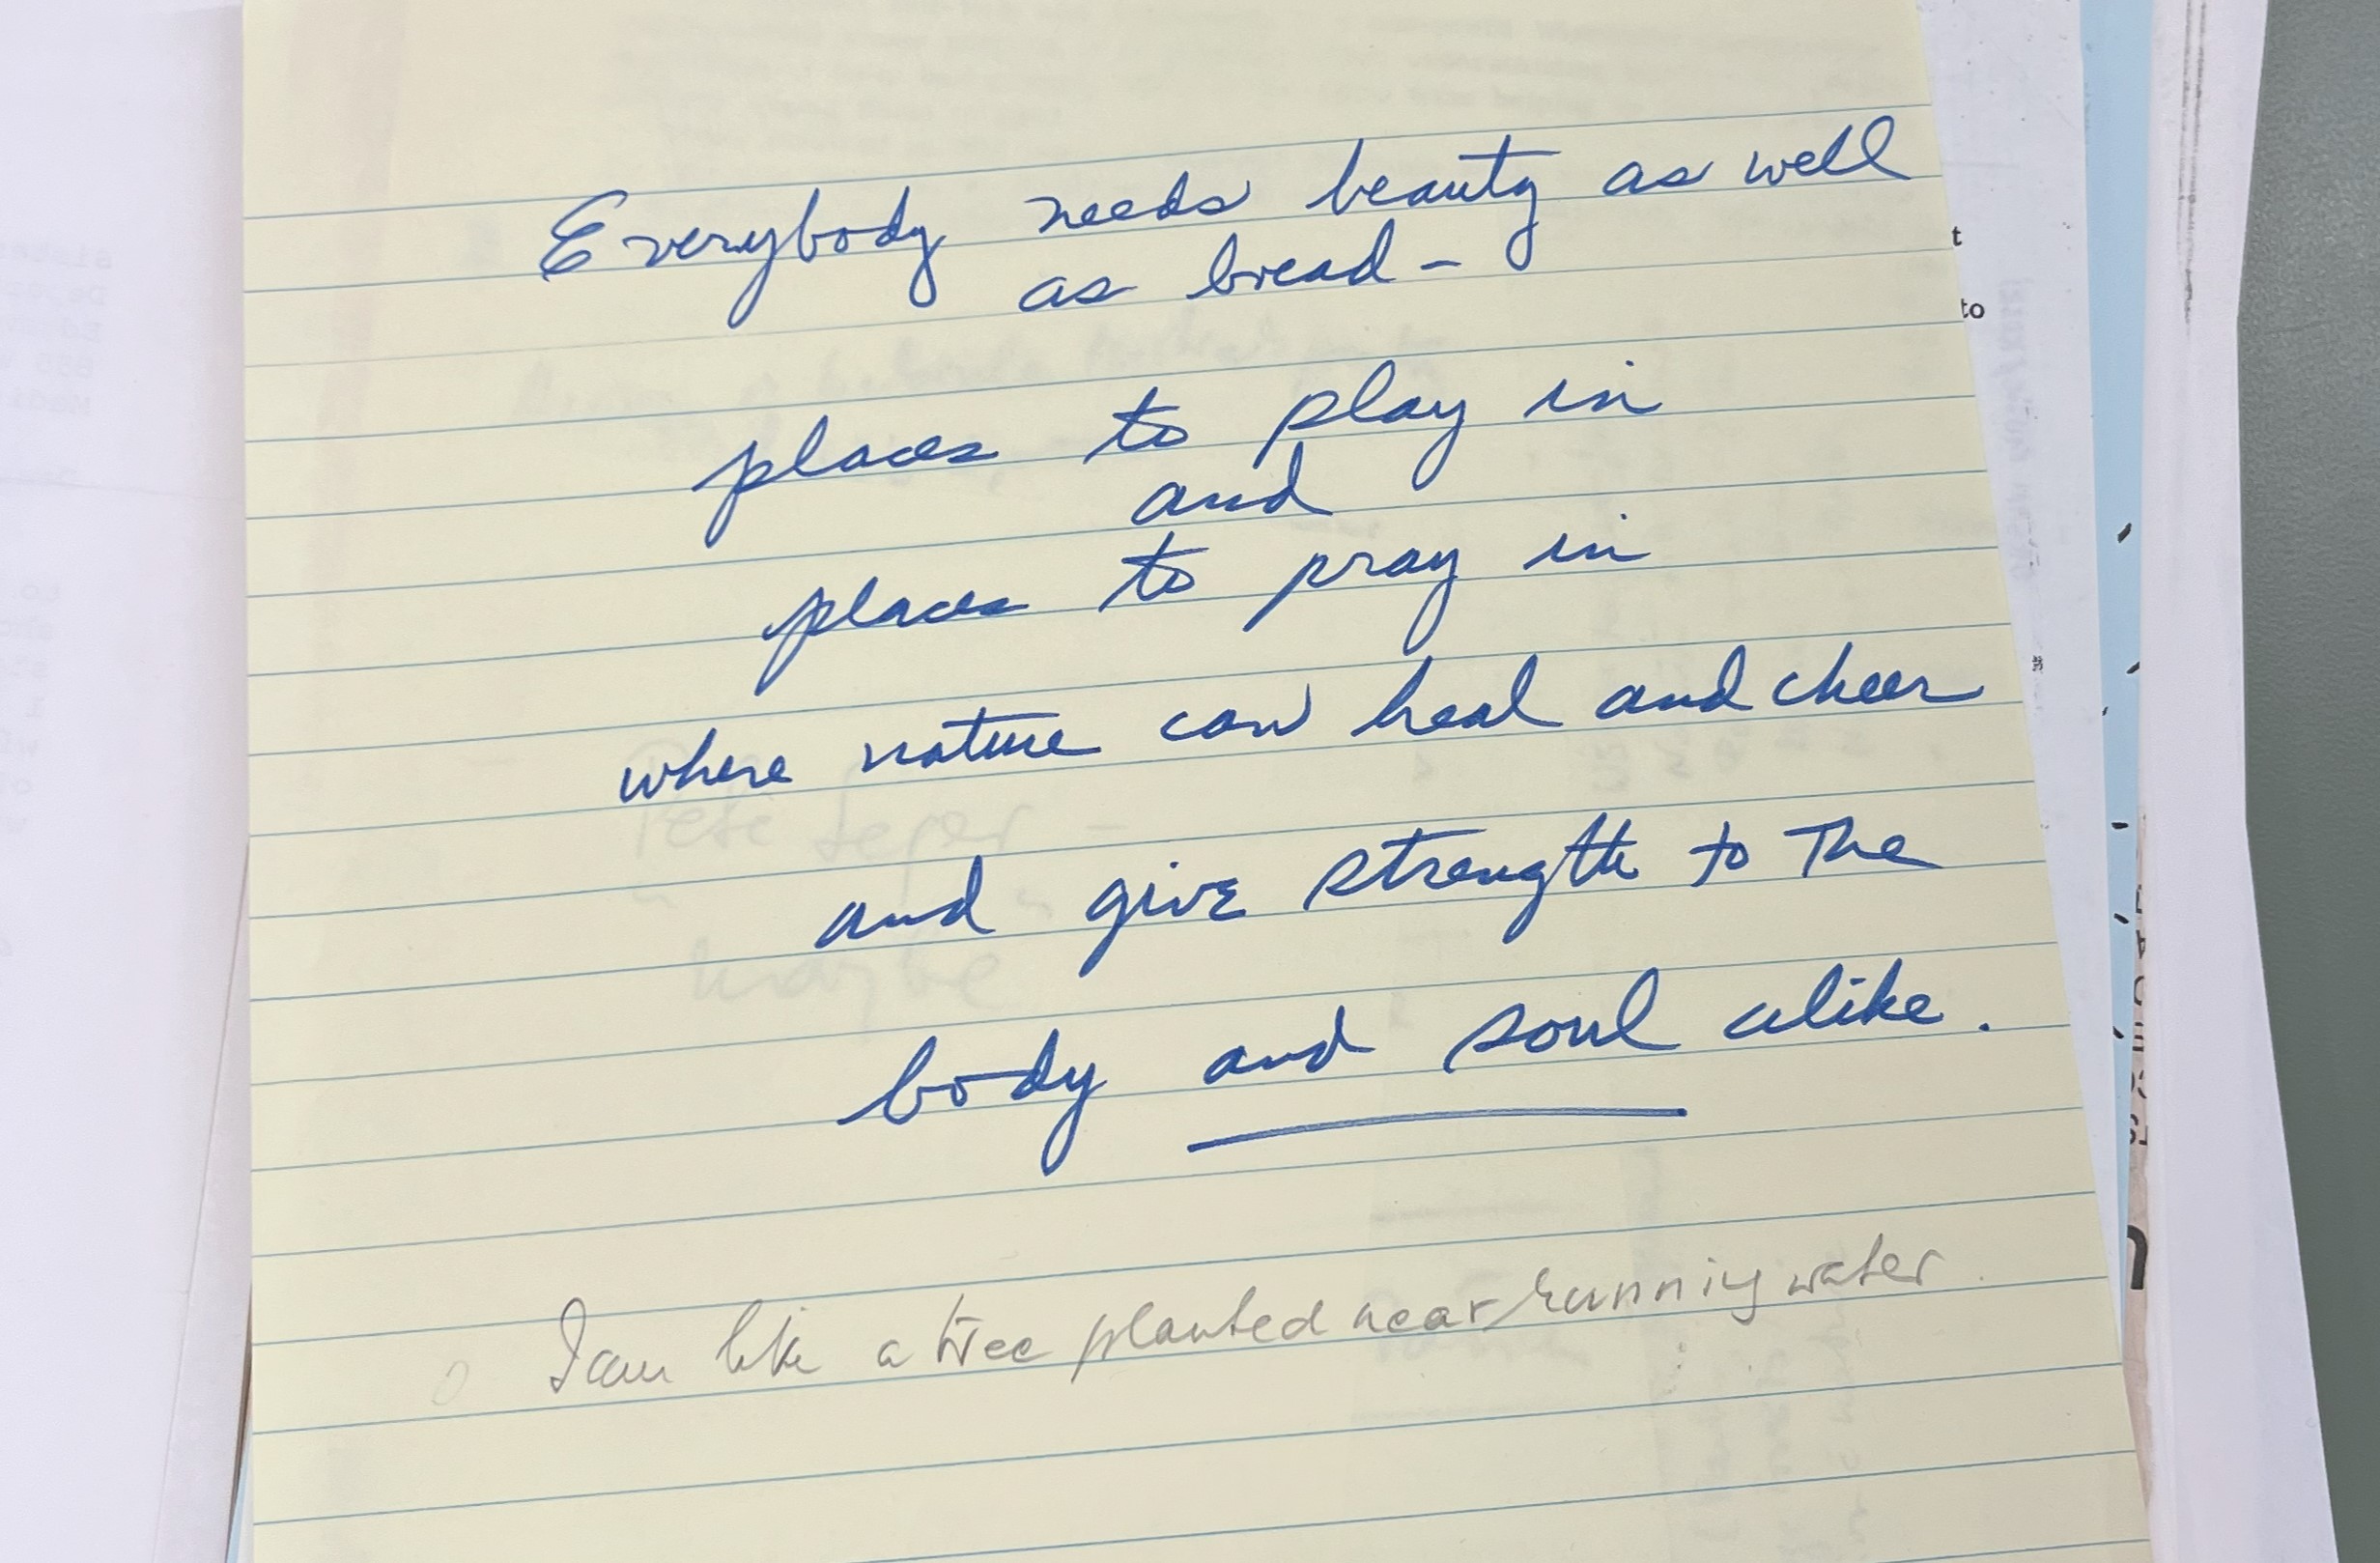 Everybody needs beauty as well
as bread -
places to play in
and
places to pray in
where nature can heal and cheer
and give strength to the
body and soul alike.
I am like a tree planted near running water
t
to